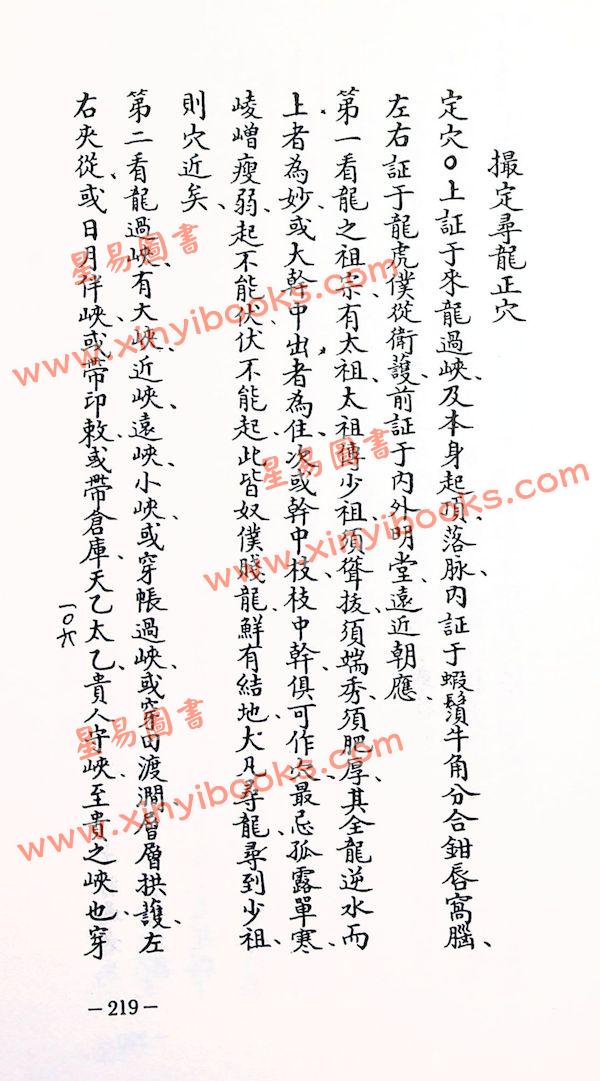 撮定尋龍正穴
定穴〇上証于來龍過峽及本身起頂、落脉、內証于蝦鬚牛角分合鉗唇窩腦、
左右証于龍虎僕從衛護、前証于內外明堂、遠近朝應、
第一看龍之祖宗、有太祖、太祖傳少祖、須聳拔、須端秀、須肥厚、其全龍逆水而
上者為妙、或大幹中出者為佳、次或幹中枝、枝中幹、俱可作、最忌孤露單寒、
崚嶒瘦弱、起不能伏、伏不能起、此皆奴僕賤龍、鮮有結地、大凡尋龍、尋到少祖、
則穴近矣、
第二看龍過峽、有大峽、近峽、遠峽、小峽、或穿帳過峽、或穿田渡澗、層層拱護、左
右夾從、或日月伴峽、或帶印敕、或帶倉庫、天乙太乙、貴人守峽、至貴之峽也、穿
一〇六
-219-
星易圖書
www.xinyibooks.com
星易圖書
www.xinyibooks.com
星易圖書
www.xinyibooks.com